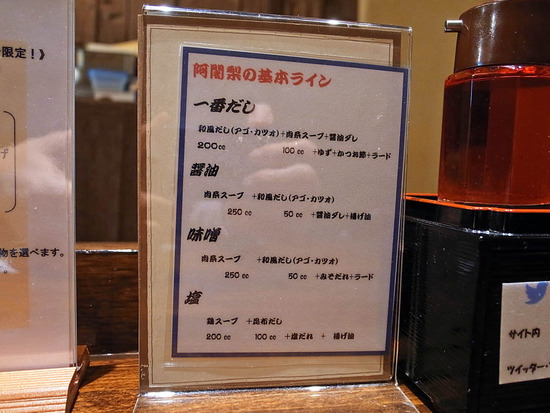 限定！》
物を選べます。
阿闍梨の基本ライン
一番だし
和風だし(アゴ・カツオ)+肉系スープ+醤油ダレ
200cc 100cc +ゆず+かつお節+ラード
醤油
肉系スープ +和風だし(アゴ・カツオ)
250cc 50cc +醤油ダレ+揚げ油
味噌
肉系スープ +和風だし(アゴ・カツオ)
250cc 50cc +みそだれ+ラード
塩
鶏スープ +昆布だし
200cc 100cc +塩だれ + 揚げ油
サイト内
ツイッター・